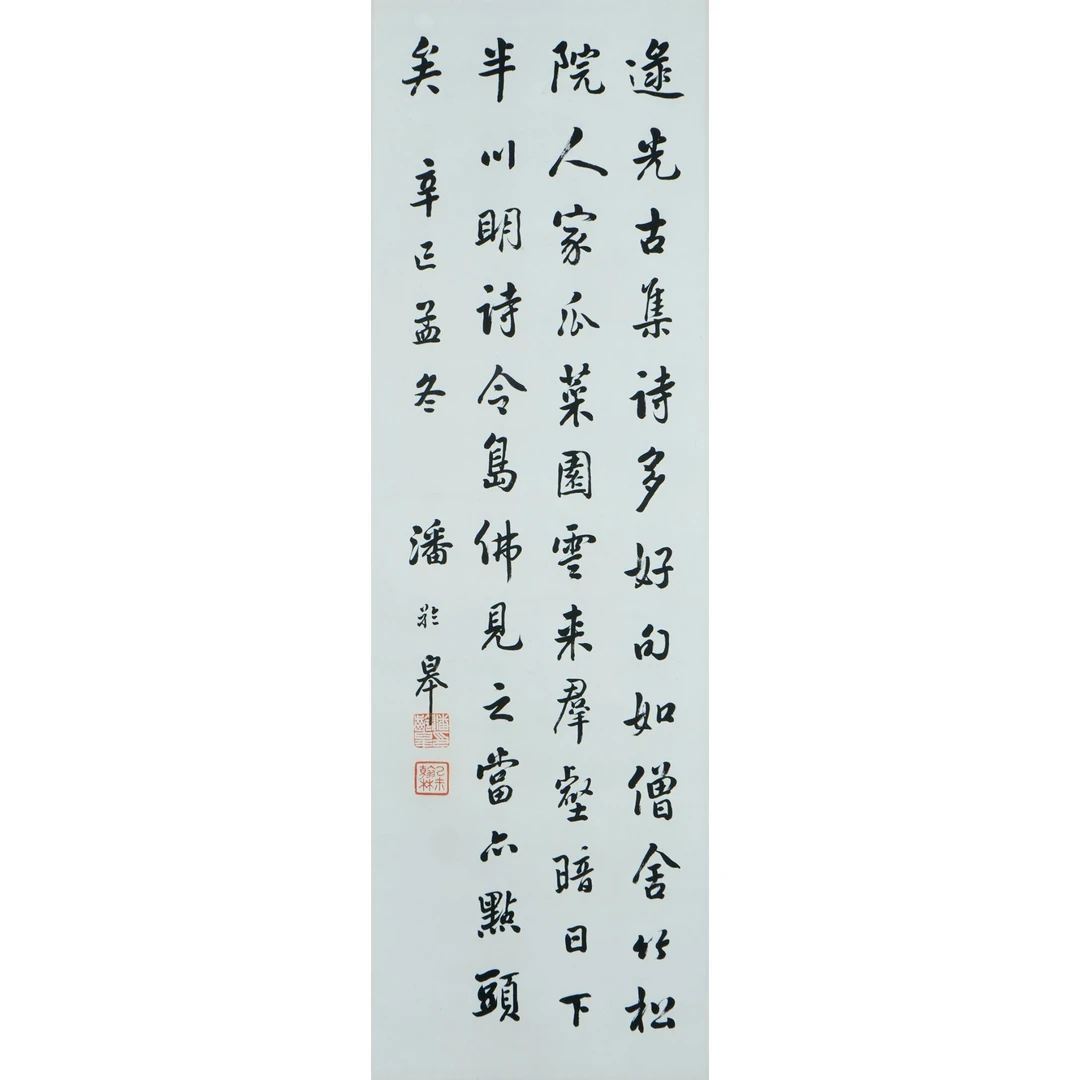 逯光古集詩多好句如僧舍竹松
院人家瓜菜園雲来羣壑暗日下
半川明詩令島佛見之當亦點頭
矣 辛巳孟冬 潘齡皋
潘齡皋印
乙未翰林